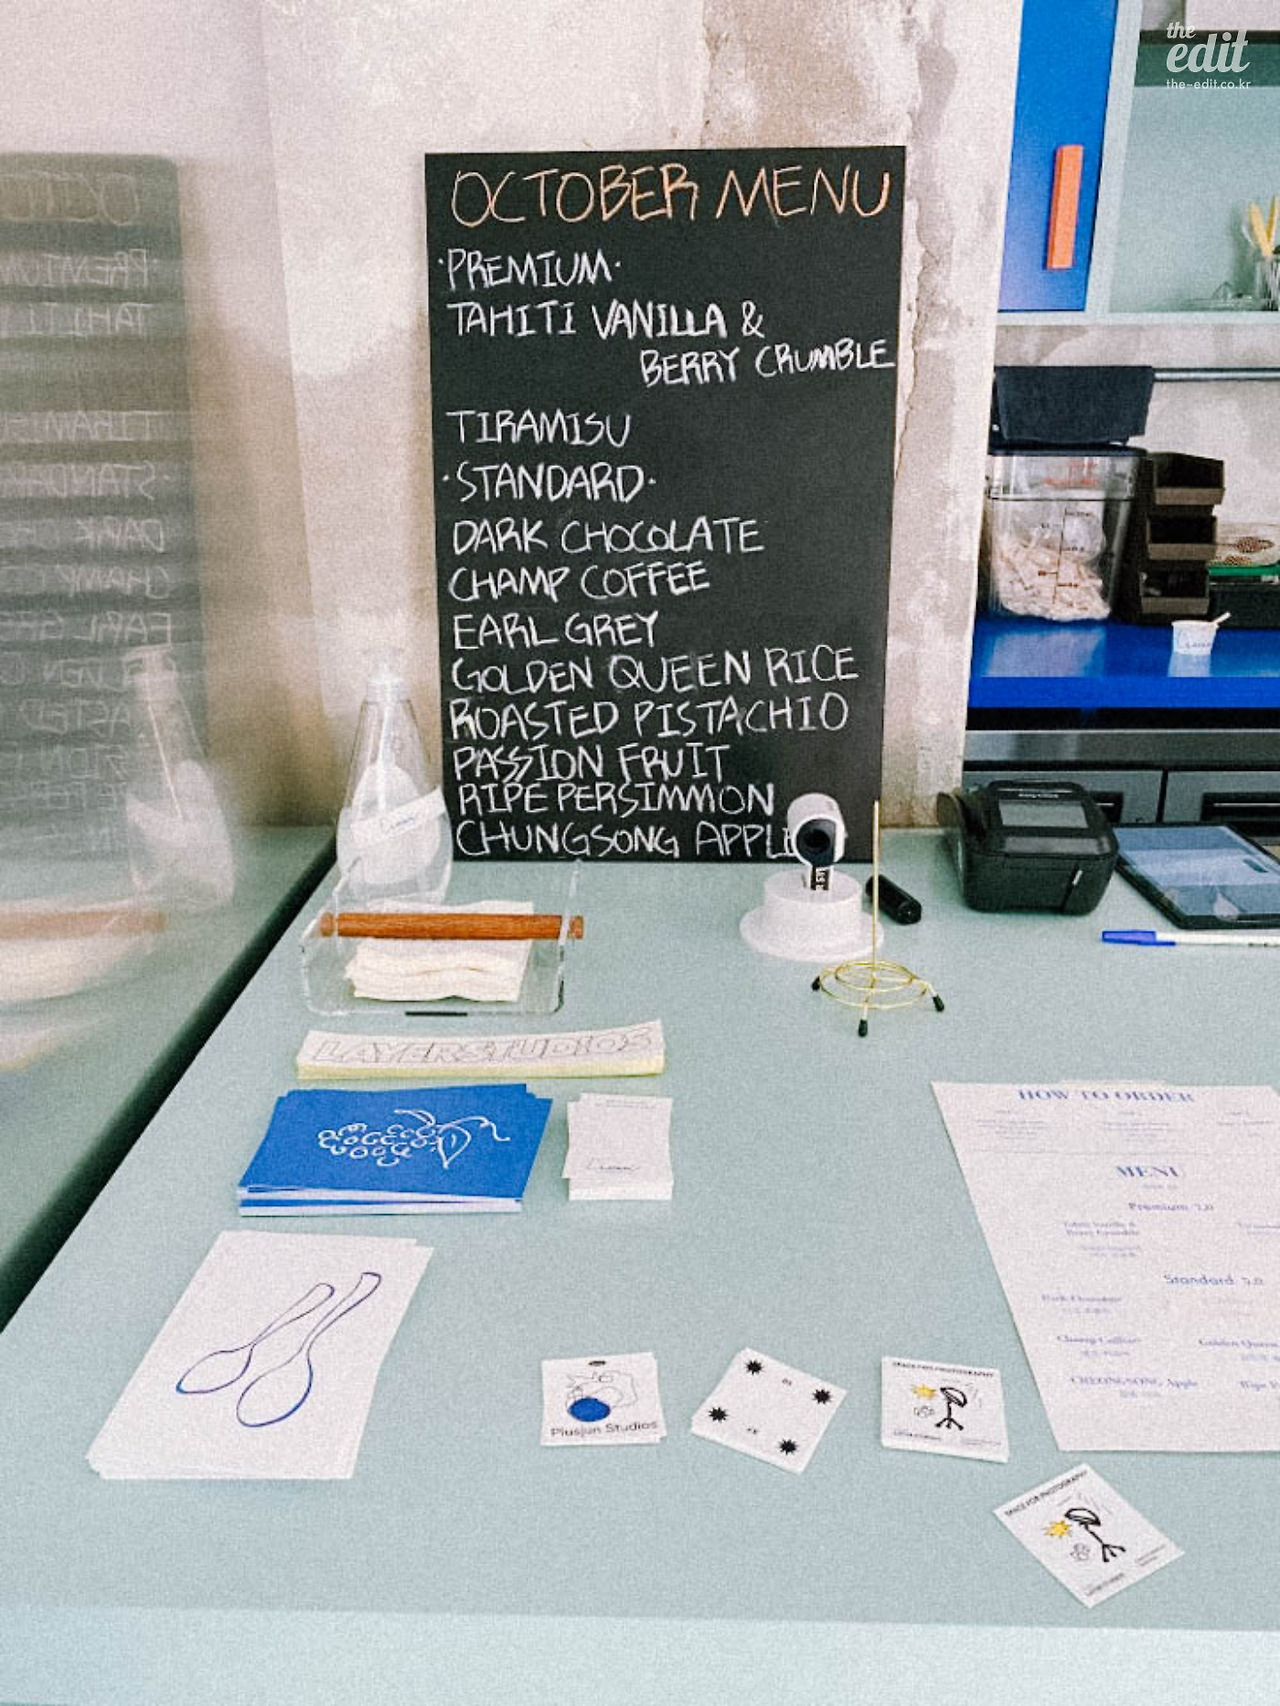 the
edit
the-edit.co.kr
OCTOBER MENU
·PREMIUM·
TAHITI VANILLA &
BERRY CRUMBLE
TIRAMISU
·STANDARD·
DARK CHOCOLATE
CHAMP COFFEE
EARL GREY
GOLDEN QUEEN RICE
ROASTED PISTACHIO
PASSION FRUIT
RIPE PERSIMMON
CHUNGSONG APPLE
LAYERSTUDIOS
HOW TO ORDER
MENU
Premium 7.0
Tahiti Vanilla &
Berry Crumble
Standard 5.0
Dark Chocolate
Champ Coffee
Golden Queen
CHEONGSONG Apple
Ripe
Plusjun Studios
SPACE FOR PHOTOGRAPHY
SPACE FOR PHOTOGRAPHY